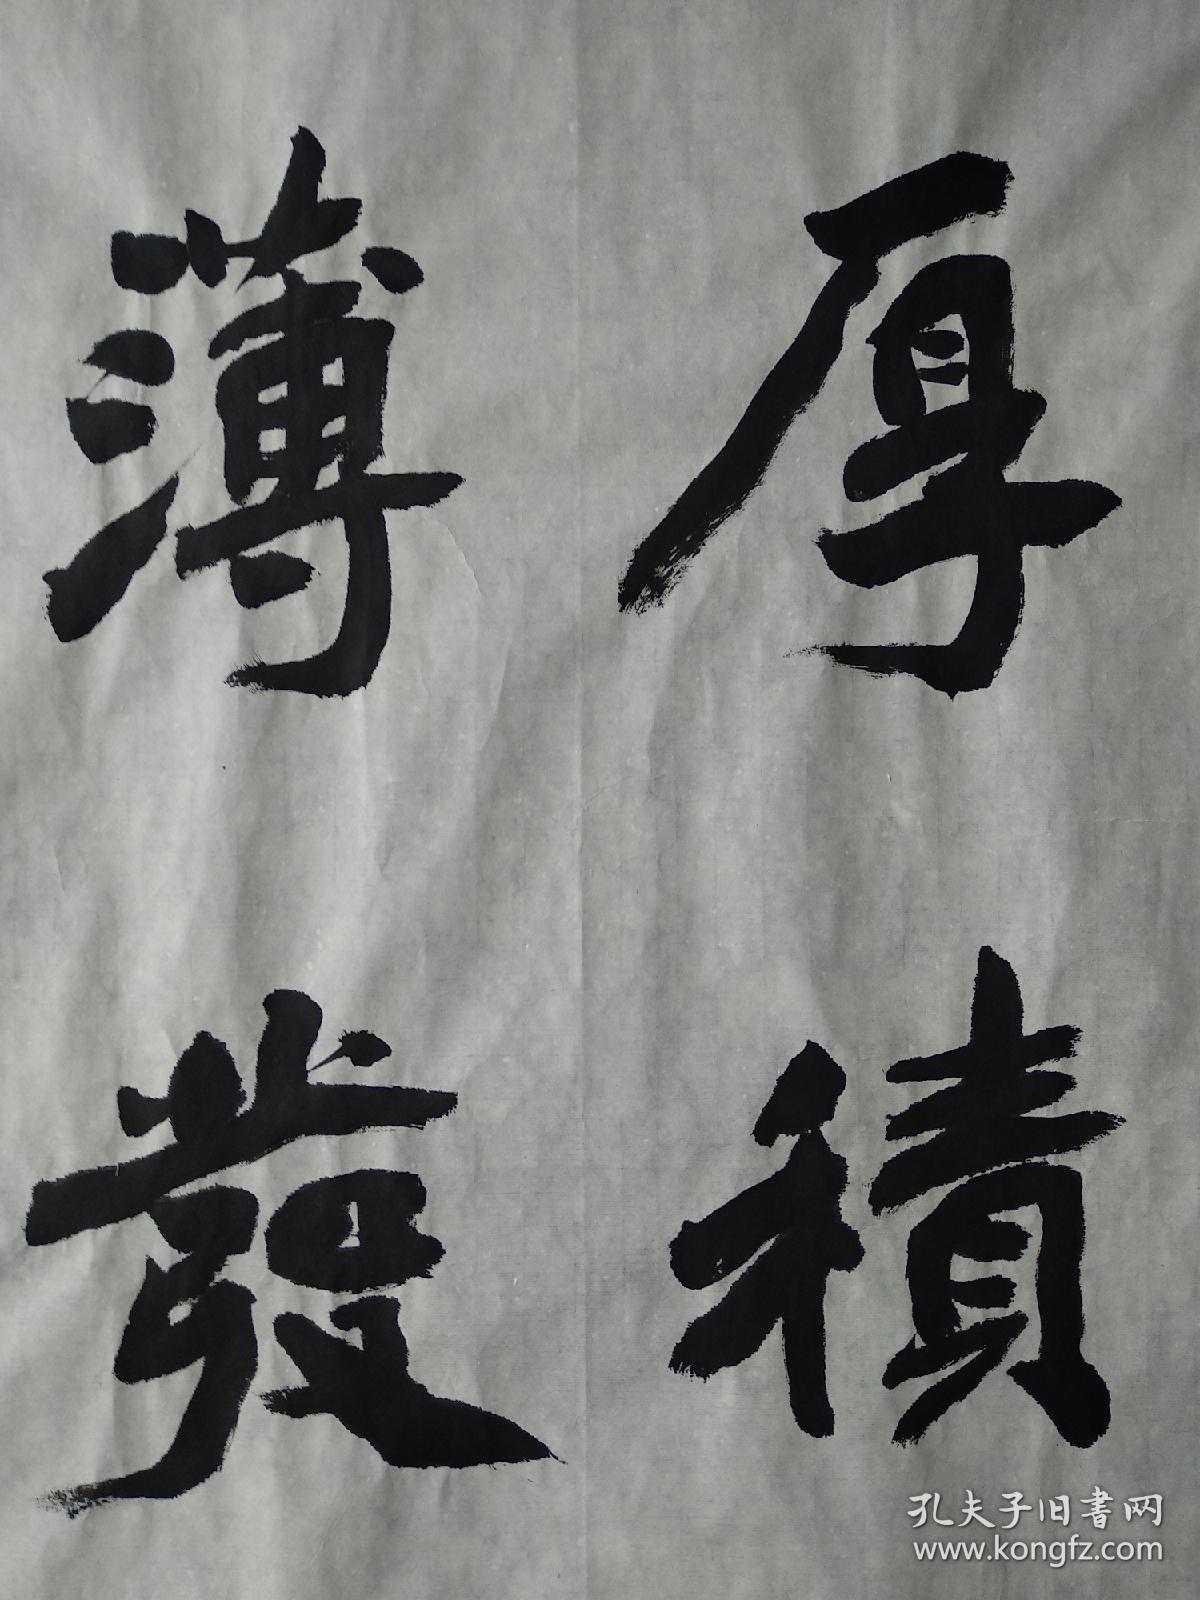 厚積
薄發
孔夫子旧書网
www.kongfz.com